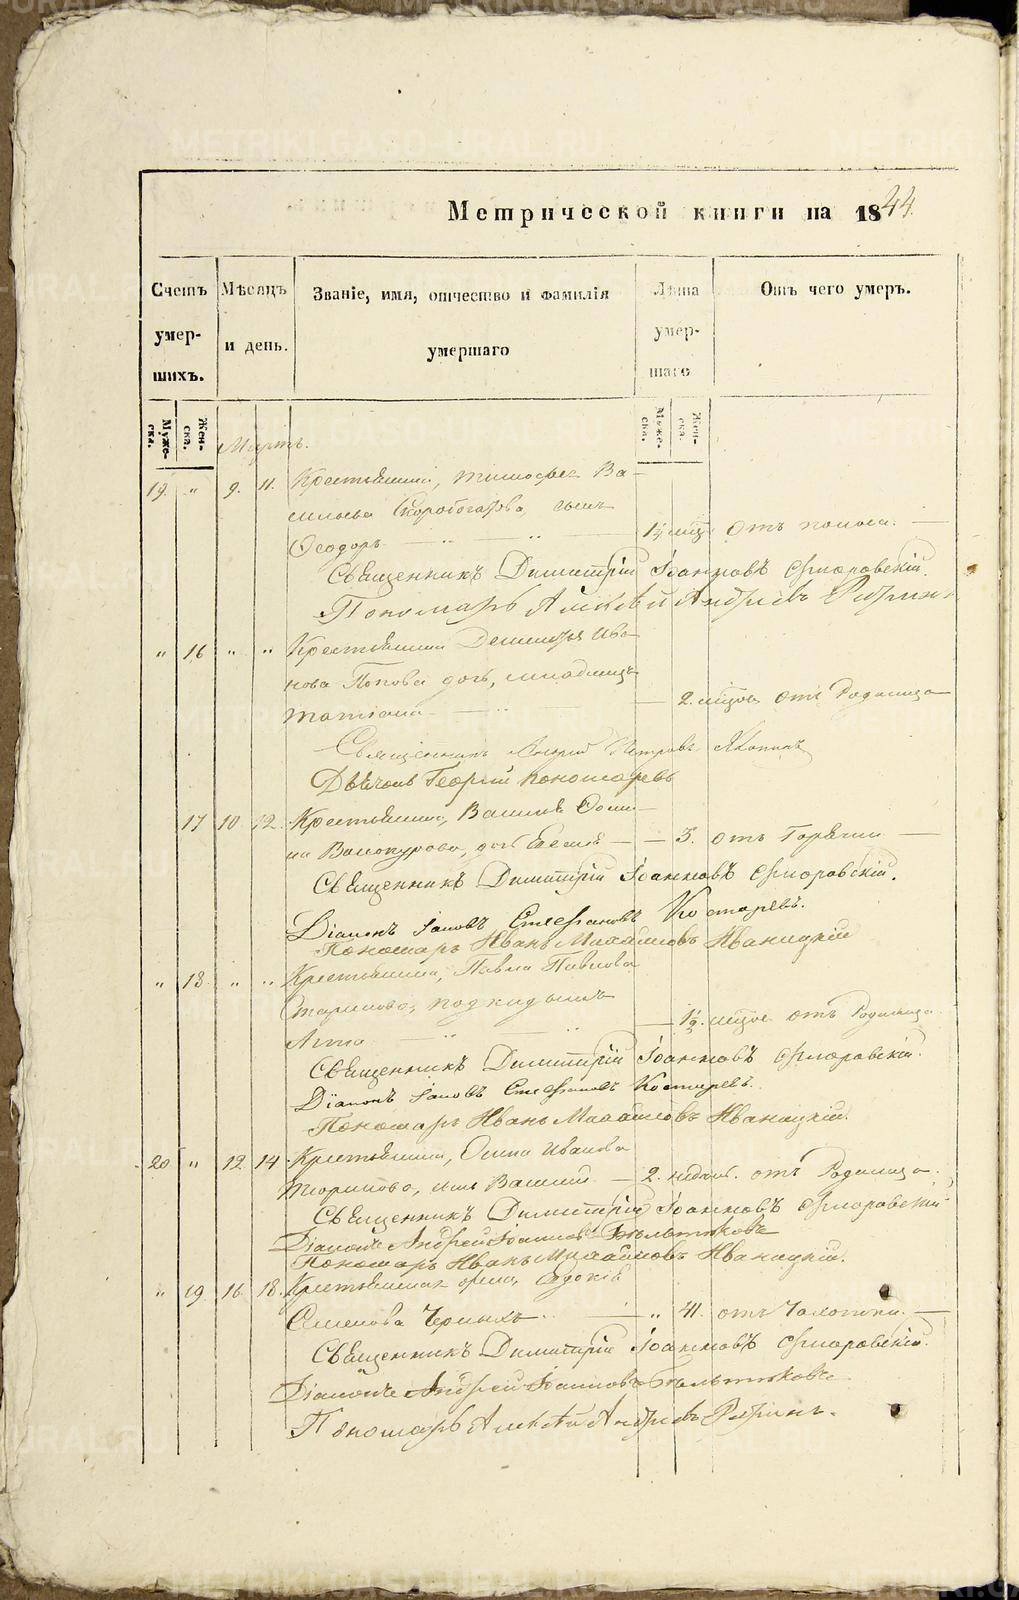 Метрической книги на 1844
Счетъ умер-шихъ.
Мѣсяцъ и день.
Званіе, имя, отчество и фамилія умершаго
Лѣта умер-шаго
Отъ чего умеръ.
Муже-ска.
Жен-ска.
Муже-ска.
Жен-ска.
Мартъ.
19. " 9. 11. Крестьянина, Тимофея Ва-
сильева Скоробогатова, сынъ
Ѳеодоръ — " — " — 1½ мѣс. отъ поноса. —
Священникъ Димитрій Іоанновъ Флоровскій.
Пономарь Алексѣй Андреевъ
" 16 " " Крестьянина Ива-
нова Попова дочь, младенецъ
Татіана — " — 2. мѣсяц. отъ Родимца —
Священникъ Андрей Петровъ
Дьячокъ Георгій Пономаревъ
17 10. 12. Крестьянина, Василія
Винокурова, дочь — — 3. отъ Горячки —
Священникъ Димитрій Іоанновъ Флоровскій.
Діаконъ Іаковъ Стефановъ Костаревъ.
Пономарь Иванъ Михайловъ Иваницкій
" 18. " " Крестьянина, Павла Павлова
подкидышъ
Анна — " — " — 1½. мѣсяц. отъ Родимца.
Священникъ Димитрій Іоанновъ Флоровскій.
Діаконъ Іаковъ Стефановъ Костаревъ.
Пономарь Иванъ Михайловъ Иваницкій.
20 " 12 14 Крестьянина, Осипа Иванова
сынъ Василій — 2. недѣл. отъ Родимца.
Священникъ Димитрій Іоанновъ Флоровскій
Діаконъ Андрей Іоанновъ Бѣльтюковъ
Пономарь Иванъ Михайловъ Иваницкій.
" 19. 16. 18. Крестьянская жена, Евдокія
Семенова Черныхъ. — " 41. отъ Чахотки. —
Священникъ Димитрій Іоанновъ Флоровскій.
Діаконъ Андрей Іоанновъ Бѣльтюковъ
Пономарь Алексѣй Андреевъ
METRIKI.GASO-URAL.RU